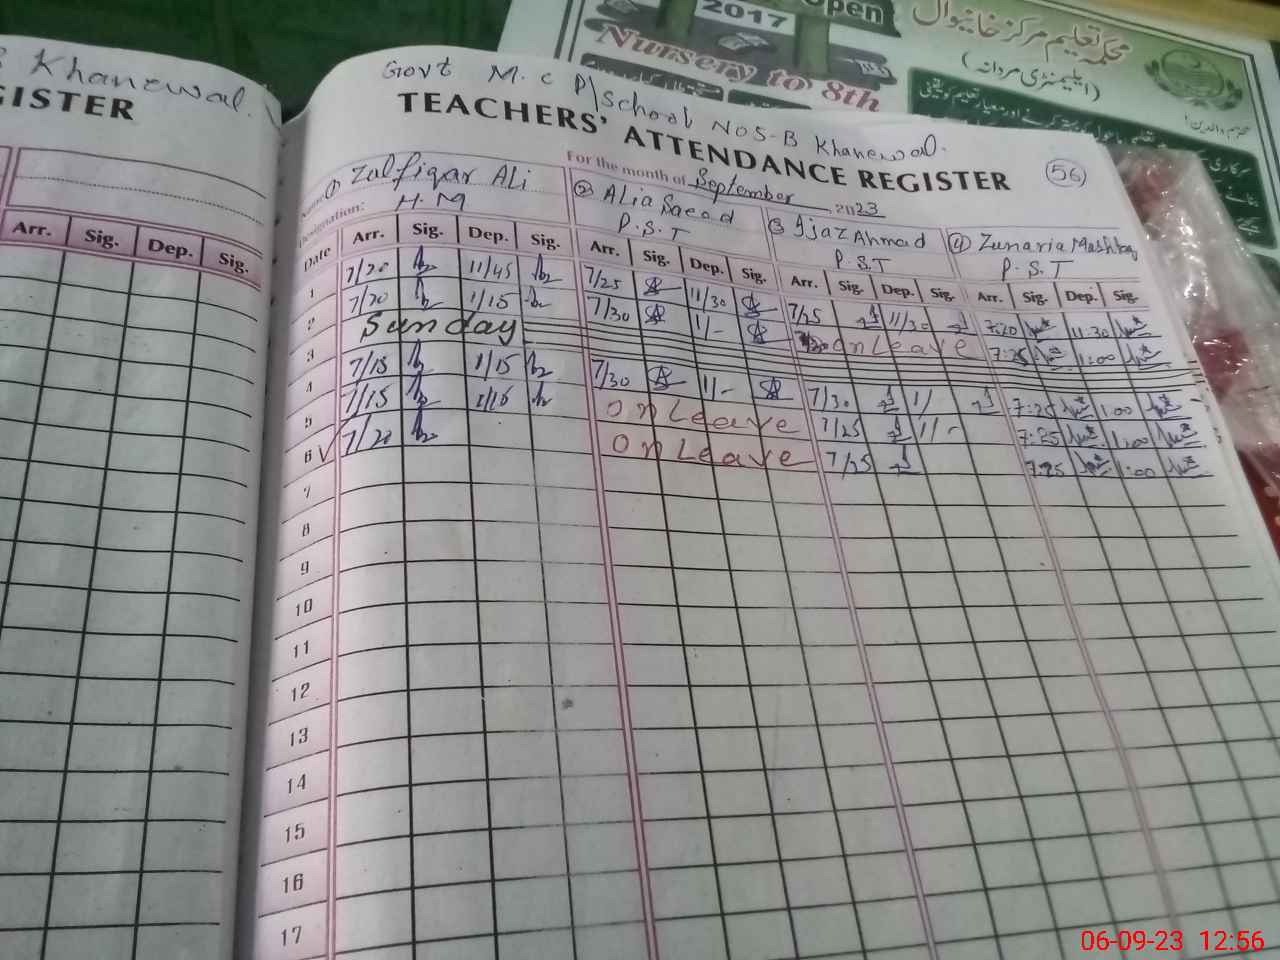 Khanewal.
GISTER
Arr. Sig. Dep. Sig.
2017 Open
Nursery to 8th
محکمہ تعلیم مرکز خانیوال
(ایلیمنٹری مردانہ)
Govt M.C P/School No 5-B Khanewal.
TEACHERS' ATTENDANCE REGISTER
56
For the month of September 2023
Name: ① Zulfiqar Ali ② Alia Saeed ③ Ijaz Ahmad ④ Zunaria Mushtaq
Designation: H.M P.S.T P.S.T P.S.T
Date Arr. Sig. Dep. Sig. Arr. Sig. Dep. Sig. Arr. Sig. Dep. Sig. Arr. Sig. Dep. Sig.
1 7/20 11/45 7/25 11/30 7/25 11/30 7:20 11:30
2 7/20 1/15 7/30 1/- on Leave 7:25 1:00
3 Sunday
4 7/15 1/15 7/30 1/- 7/30 1/ 7:25 1:00
5 7/15 1/15 on Leave 7/25 1/- 7:25 1:00
6 7/20 on Leave 7/25 7:25 1:00
7
8
9
10
11
12
13
14
15
16
17
06-09-23 12:56